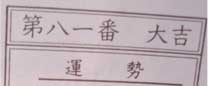 第八一番 大吉
運勢